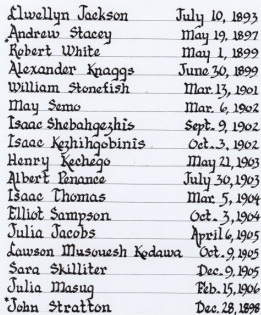 Llwellyn Jackson July 10, 1893
Andrew Stacey May 19, 1897
*Robert White May 1, 1899
Alexander Knaggs June 30, 1899
William Stonefish Mar. 13, 1901
May Semo Mar. 6, 1902
Isaac Shebahgezhis Sept. 9, 1902
Isaac Kezhihgobinis Oct. 3, 1902
Henry Kechego May 21, 1903
Albert Penance July 30, 1903
Isaac Thomas Mar. 5, 1904
Elliot Sampson Oct. 3, 1904
Julia Jacobs April 6, 1905
Lawson Musquesh Kodawa Oct. 9, 1905
Sara Skilliter Dec. 9, 1905
Julia Masug Feb. 15, 1906
*John Stratton Dec. 28, 1898